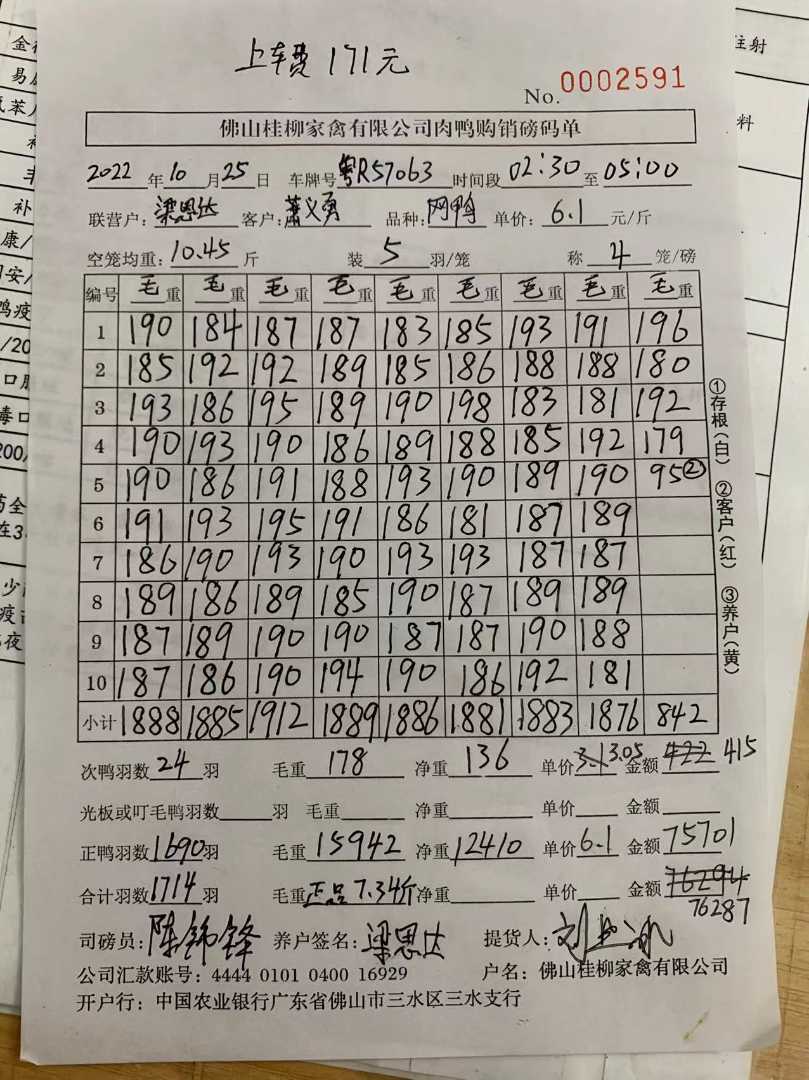 上车费 171元
No. 0002591
佛山桂柳家禽有限公司肉鸭购销磅码单
2022 年 10 月 25 日 车牌号 粤R57063 时间段 02:30 至 05:00
联营户: 梁恩达 客户: 萧义勇 品种: 网鸭 单价: 6.1 元/斤
空笼均重: 10.45 斤 装 5 羽/笼 称 4 笼/磅
编号 毛重 毛重 毛重 毛重 毛重 毛重 毛重 毛重 毛重
1 190 184 187 187 183 185 193 191 196
2 185 192 192 189 185 186 188 188 180
3 193 186 195 189 190 198 183 181 192
4 190 193 190 186 189 188 185 192 179
5 190 186 191 188 193 190 189 190 95②
6 191 193 195 191 186 181 187 189
7 186 190 193 190 193 193 187 187
8 189 186 189 185 190 187 189 189
9 187 189 190 190 187 187 190 188
10 187 186 190 194 190 186 192 181
小计 1888 1885 1912 1889 1886 1881 1883 1876 842
次鸭羽数 24 羽 毛重 178 净重 136 单价 3.1 3.05 金额 422 415
光板或叮毛鸭羽数 羽 毛重 净重 单价 金额
正鸭羽数 1690 羽 毛重 15942 净重 12410 单价 6.1 金额 75701
合计羽数 1714 羽 毛重 正品 7.34斤 净重 单价 金额 76294
76287
司磅员: 陈锦锋 养户签名: 梁恩达 提货人:
公司汇款账号: 4444 0101 0400 16929 户名: 佛山桂柳家禽有限公司
开户行: 中国农业银行广东省佛山市三水区三水支行
①存根(白) ②客户(红) ③养户(黄)
注射
料